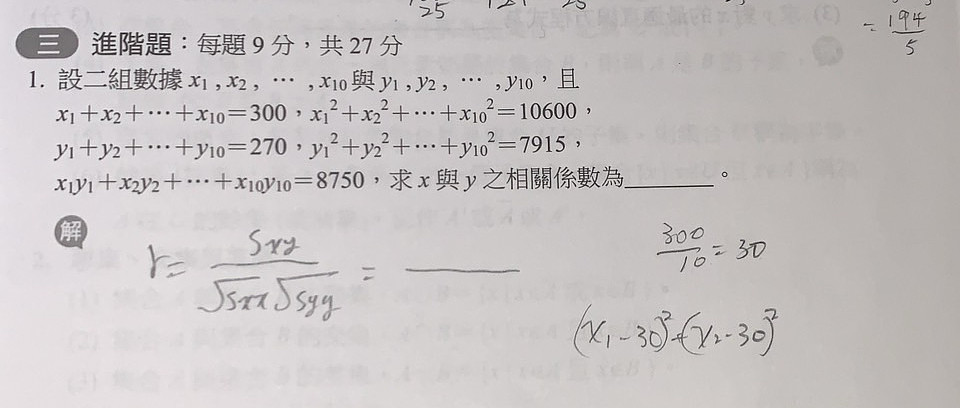 25
= 194/5
三 進階題：每題 9 分，共 27 分
1. 設二組數據 x₁ , x₂ , ⋯ , x₁₀ 與 y₁ , y₂ , ⋯ , y₁₀，且
x₁+x₂+⋯+x₁₀=300，x₁²+x₂²+⋯+x₁₀²=10600，
y₁+y₂+⋯+y₁₀=270，y₁²+y₂²+⋯+y₁₀²=7915，
x₁y₁+x₂y₂+⋯+x₁₀y₁₀=8750，求 x 與 y 之相關係數為________。
解
r= Sxy/(√Sxx √Syy) = ____
300/10 = 30
(x₁-30)²+(x₂-30)²